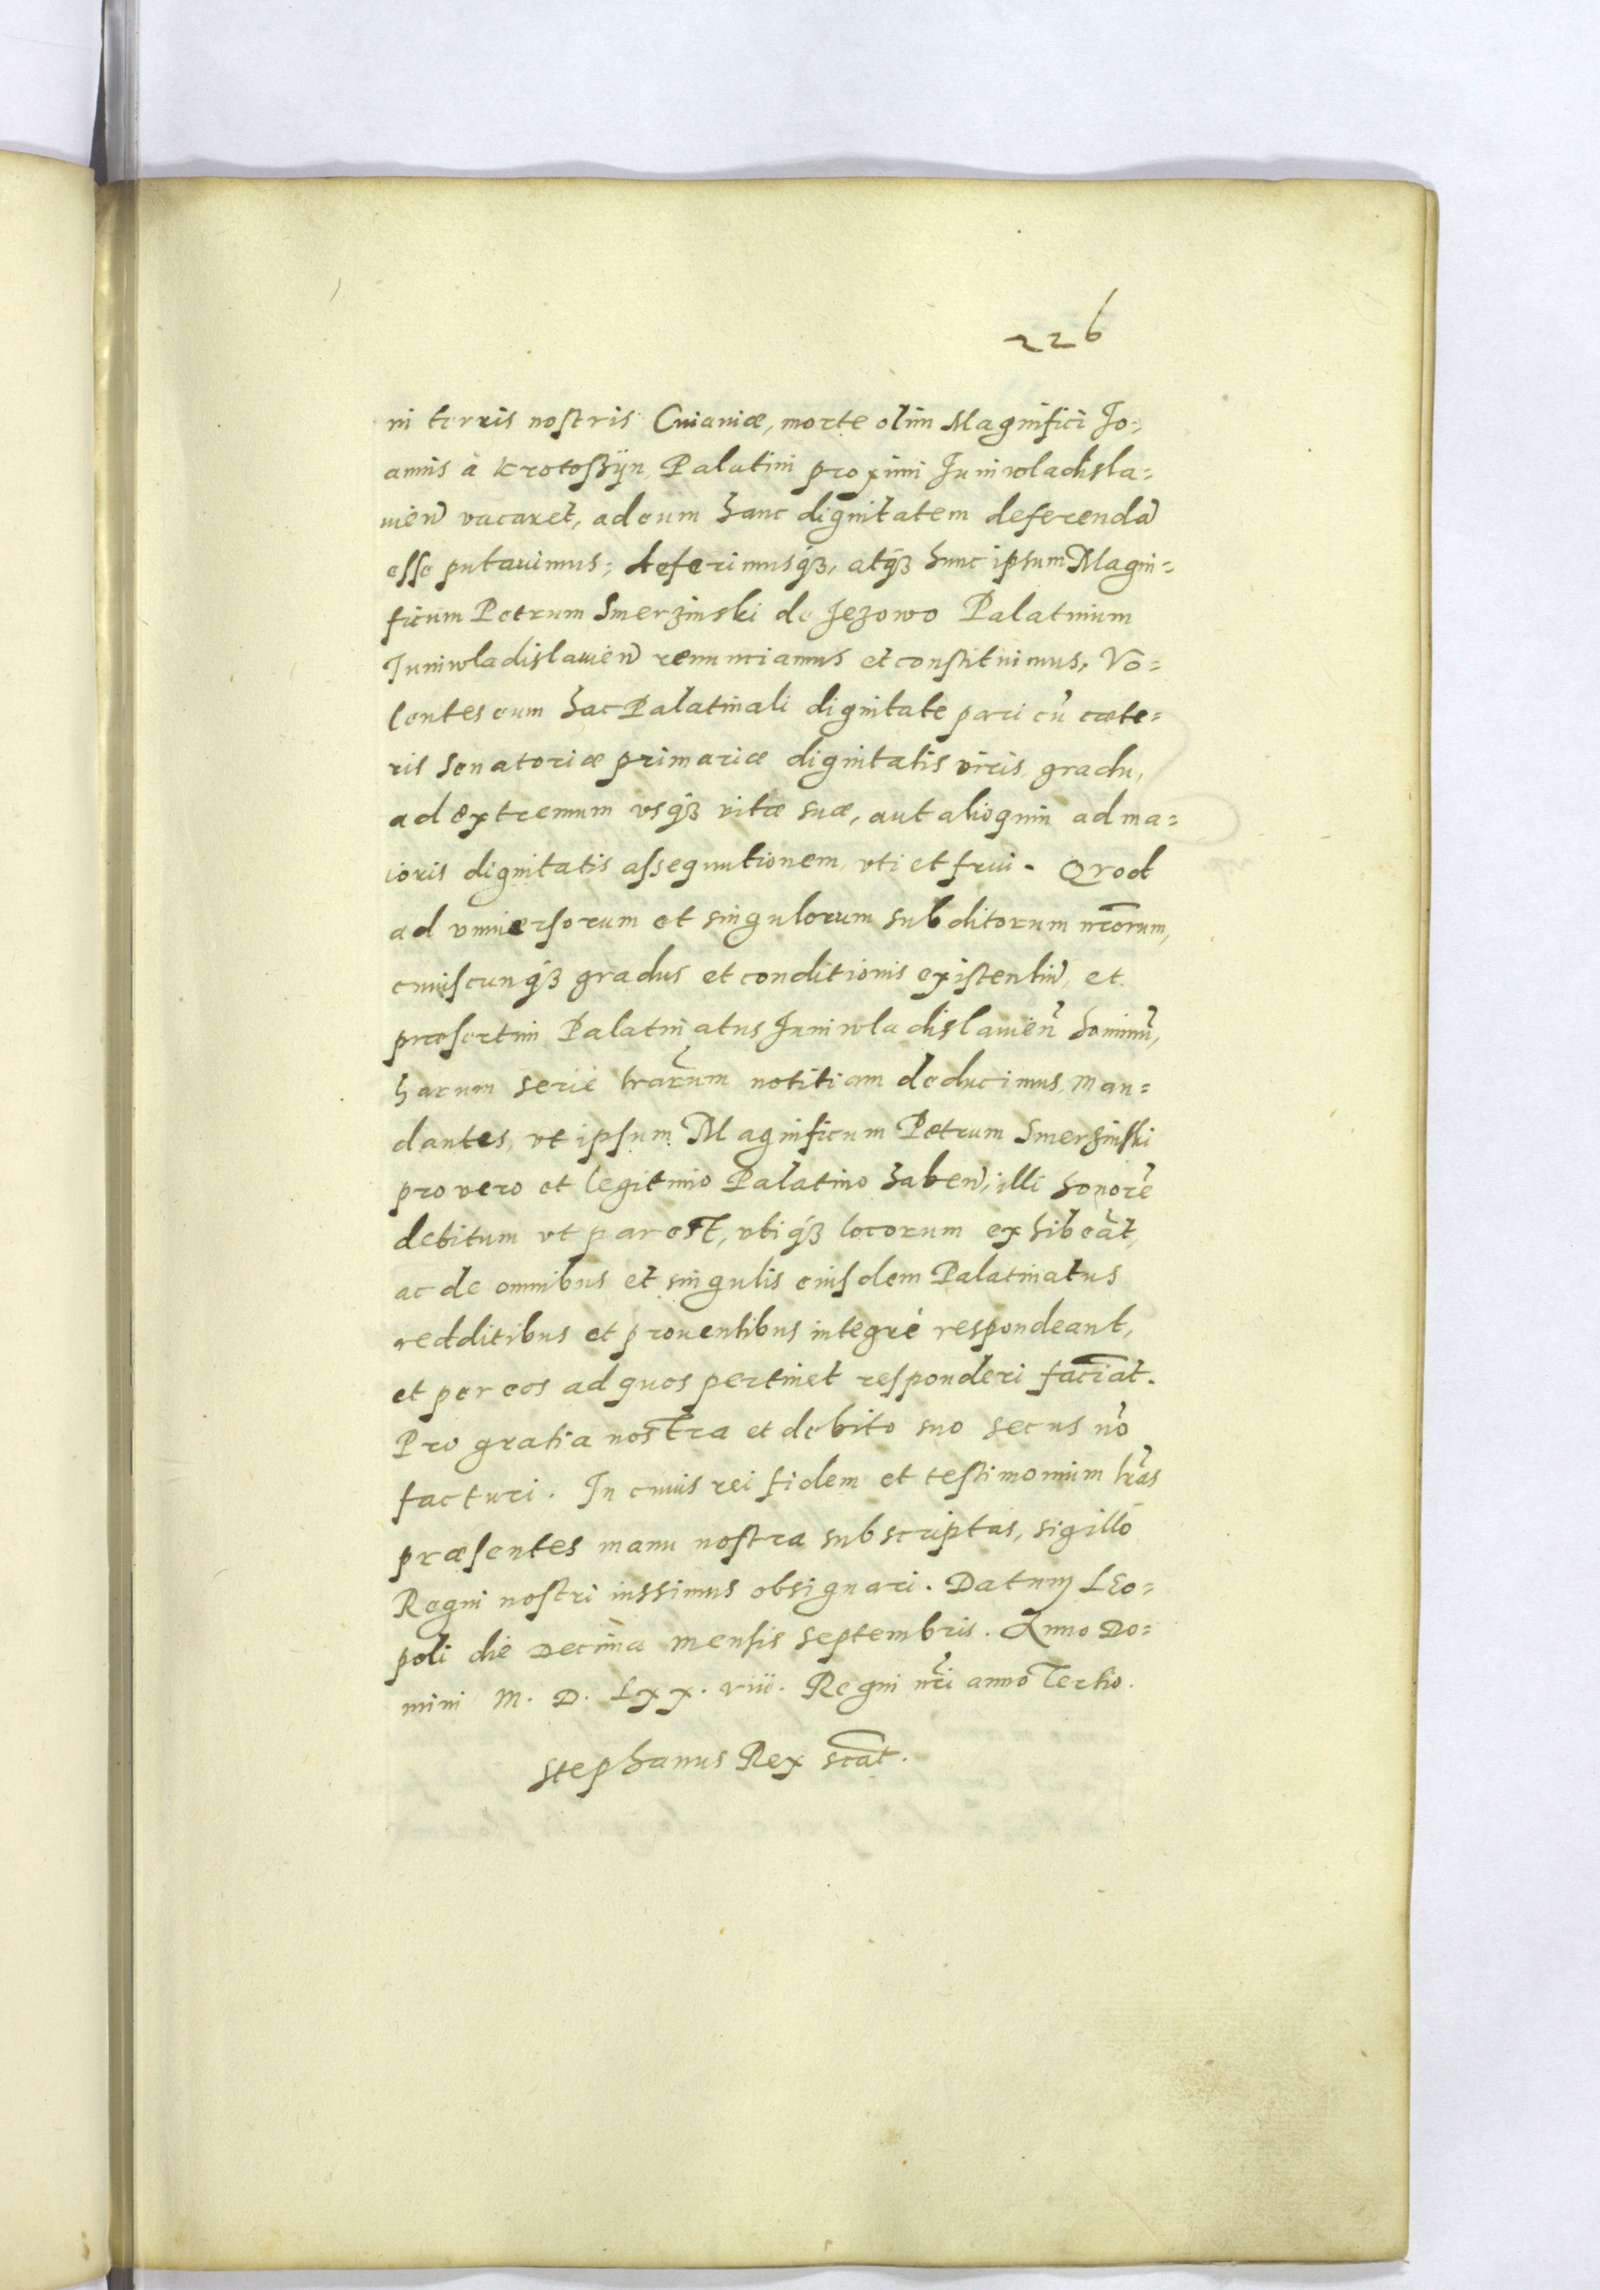 226
in terris nostris Cuiauiæ, morte olim Magnifici Jo=
annis à Krotoszijn Palatini proximi Juniwladisla=
uien̄ vacaret, ad eum hanc dignitatem deferendā
esse putauimus; deferimusq́ȝ, atq́ȝ hunc ipsum Magni=
ficum Petrum Smerzinski de Jezowo Palatinum
Juniwladislauien̄ renunciamus et constituimus, Vo=
lentes eum hac Palatinali dignitate pari cū cæte=
ris senatoriæ primariæ dignitatis viris gradu,
ad extremum vsq́ȝ vitæ suæ, aut alioquin ad ma=
ioris dignitatis assequutionem, vti et frui. Quod
ad vniuersorum et singulorum subditorum nr̄orum,
cuiuscunq́ȝ gradus et conditionis existentiū, et
præsertim Palatinatus Juniwladislauien̄ hominū,
harum serie lr̄arum notitiam deducimus, man=
dantes, vt ipsum Magnificum Petrum Smerzinski
pro vero et legitimo Palatino haben̄, illi honorē
debitum vt par est, vbiq́ȝ locorum exhibeāt,
ac de omnibus et singulis eiusdem Palatinatus
redditibus et prouentibus integrè respondeant,
et per eos ad quos pertinet responderi faciāt.
Pro gratia nostra et debito suo secus nō
facturi. In cuius rei fidem et testimonium lr̄as
præsentes manu nostra subscriptas, sigillo
Regni nostri iussimus obsignari. Datum Leo=
poli die Decima mensis septembris. Anno Do=
mini M. D. Lxx. viii. Regni nr̄i anno Tertio.
Stephanus Rex sc̄at.